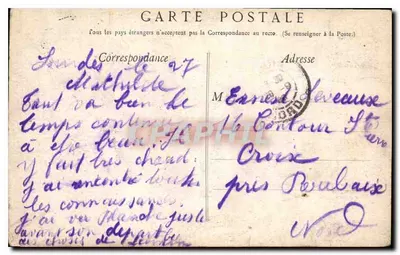 CARTE POSTALE
Tous les pays étrangers n'acceptent pas la Correspondance au recto. (Se renseigner à la Poste.)
Correspondance
Adresse
Lourdes le 27
Mathilde
Tout va bien le
temps continue
à être beau. Il
y fait très chaud.
j'ai rencontré toutes
les connaissances.
j'ai vu Blanche juste
avant son départ
M Ernest Leveaux
16 Contour St
Croix
près Roubaix
Nord